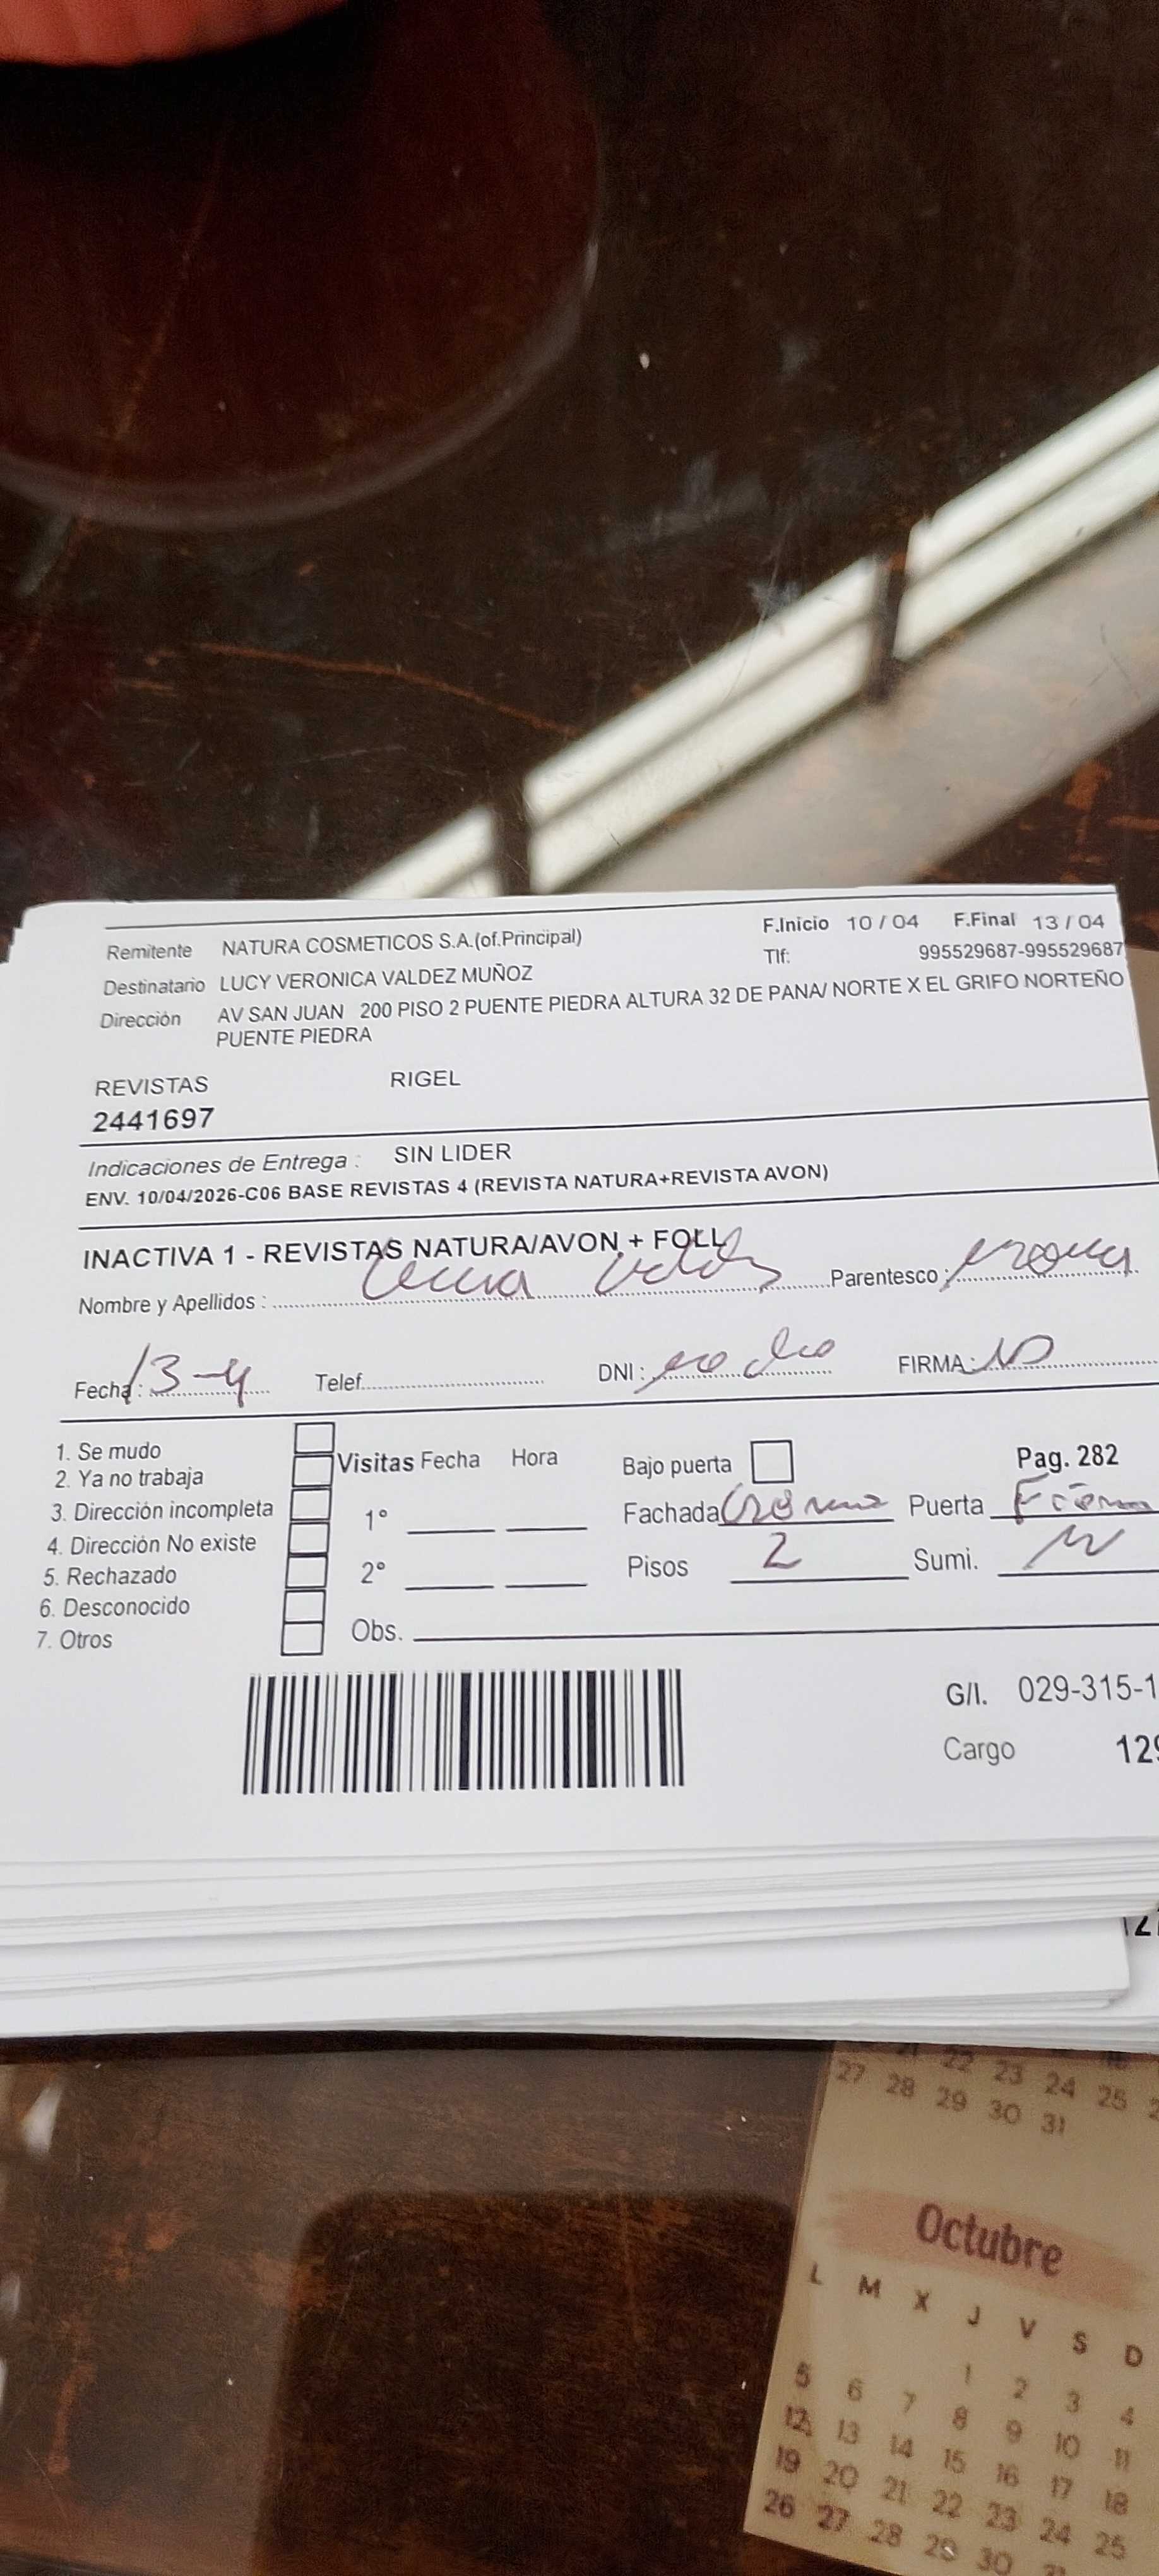 Remitente NATURA COSMETICOS S.A.(of.Principal) F.Inicio 10 / 04 F.Final 13 / 04
Tlf: 995529687-995529687
Destinatario LUCY VERONICA VALDEZ MUÑOZ
Dirección AV SAN JUAN 200 PISO 2 PUENTE PIEDRA ALTURA 32 DE PANA/ NORTE X EL GRIFO NORTEÑO
PUENTE PIEDRA
REVISTAS RIGEL
2441697
Indicaciones de Entrega : SIN LIDER
ENV. 10/04/2026-C06 BASE REVISTAS 4 (REVISTA NATURA+REVISTA AVON)
INACTIVA 1 - REVISTAS NATURA/AVON + FOLL
Nombre y Apellidos : Parentesco :
Fecha : 13-4 Telef. DNI : FIRMA:
1. Se mudo
2. Ya no trabaja
3. Dirección incompleta
4. Dirección No existe
5. Rechazado
6. Desconocido
7. Otros
Visitas Fecha Hora
1°
2°
Obs.
Bajo puerta Pag. 282
Fachada Puerta
Pisos 2 Sumi.
G/I. 029-315-1
Cargo 129
27 28 29 30 31
22 23 24 25
Octubre
L M X J V S D
1 2 3 4
5 6 7 8 9 10 11
12 13 14 15 16 17 18
19 20 21 22 23 24 25
26 27 28 29 30 31